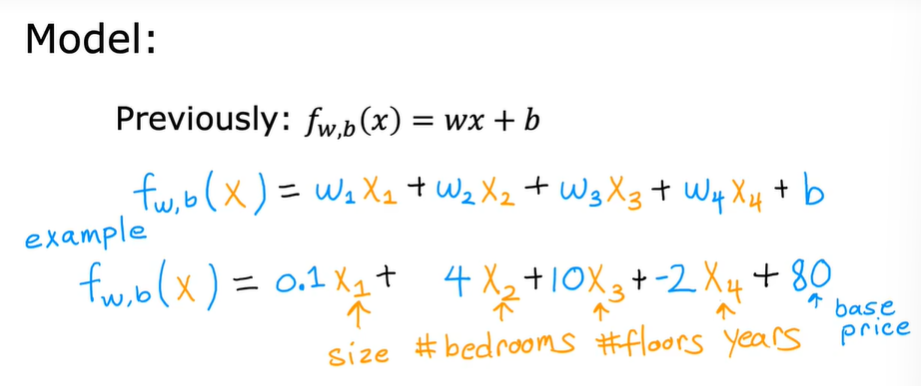 Model:
Previously: fw,b(x) = wx + b
fw,b(x) = w1x1 + w2x2 + w3x3 + w4x4 + b
example
fw,b(x) = 0.1x1 + 4x2 + 10x3 + -2x4 + 80
size #bedrooms #floors years base price